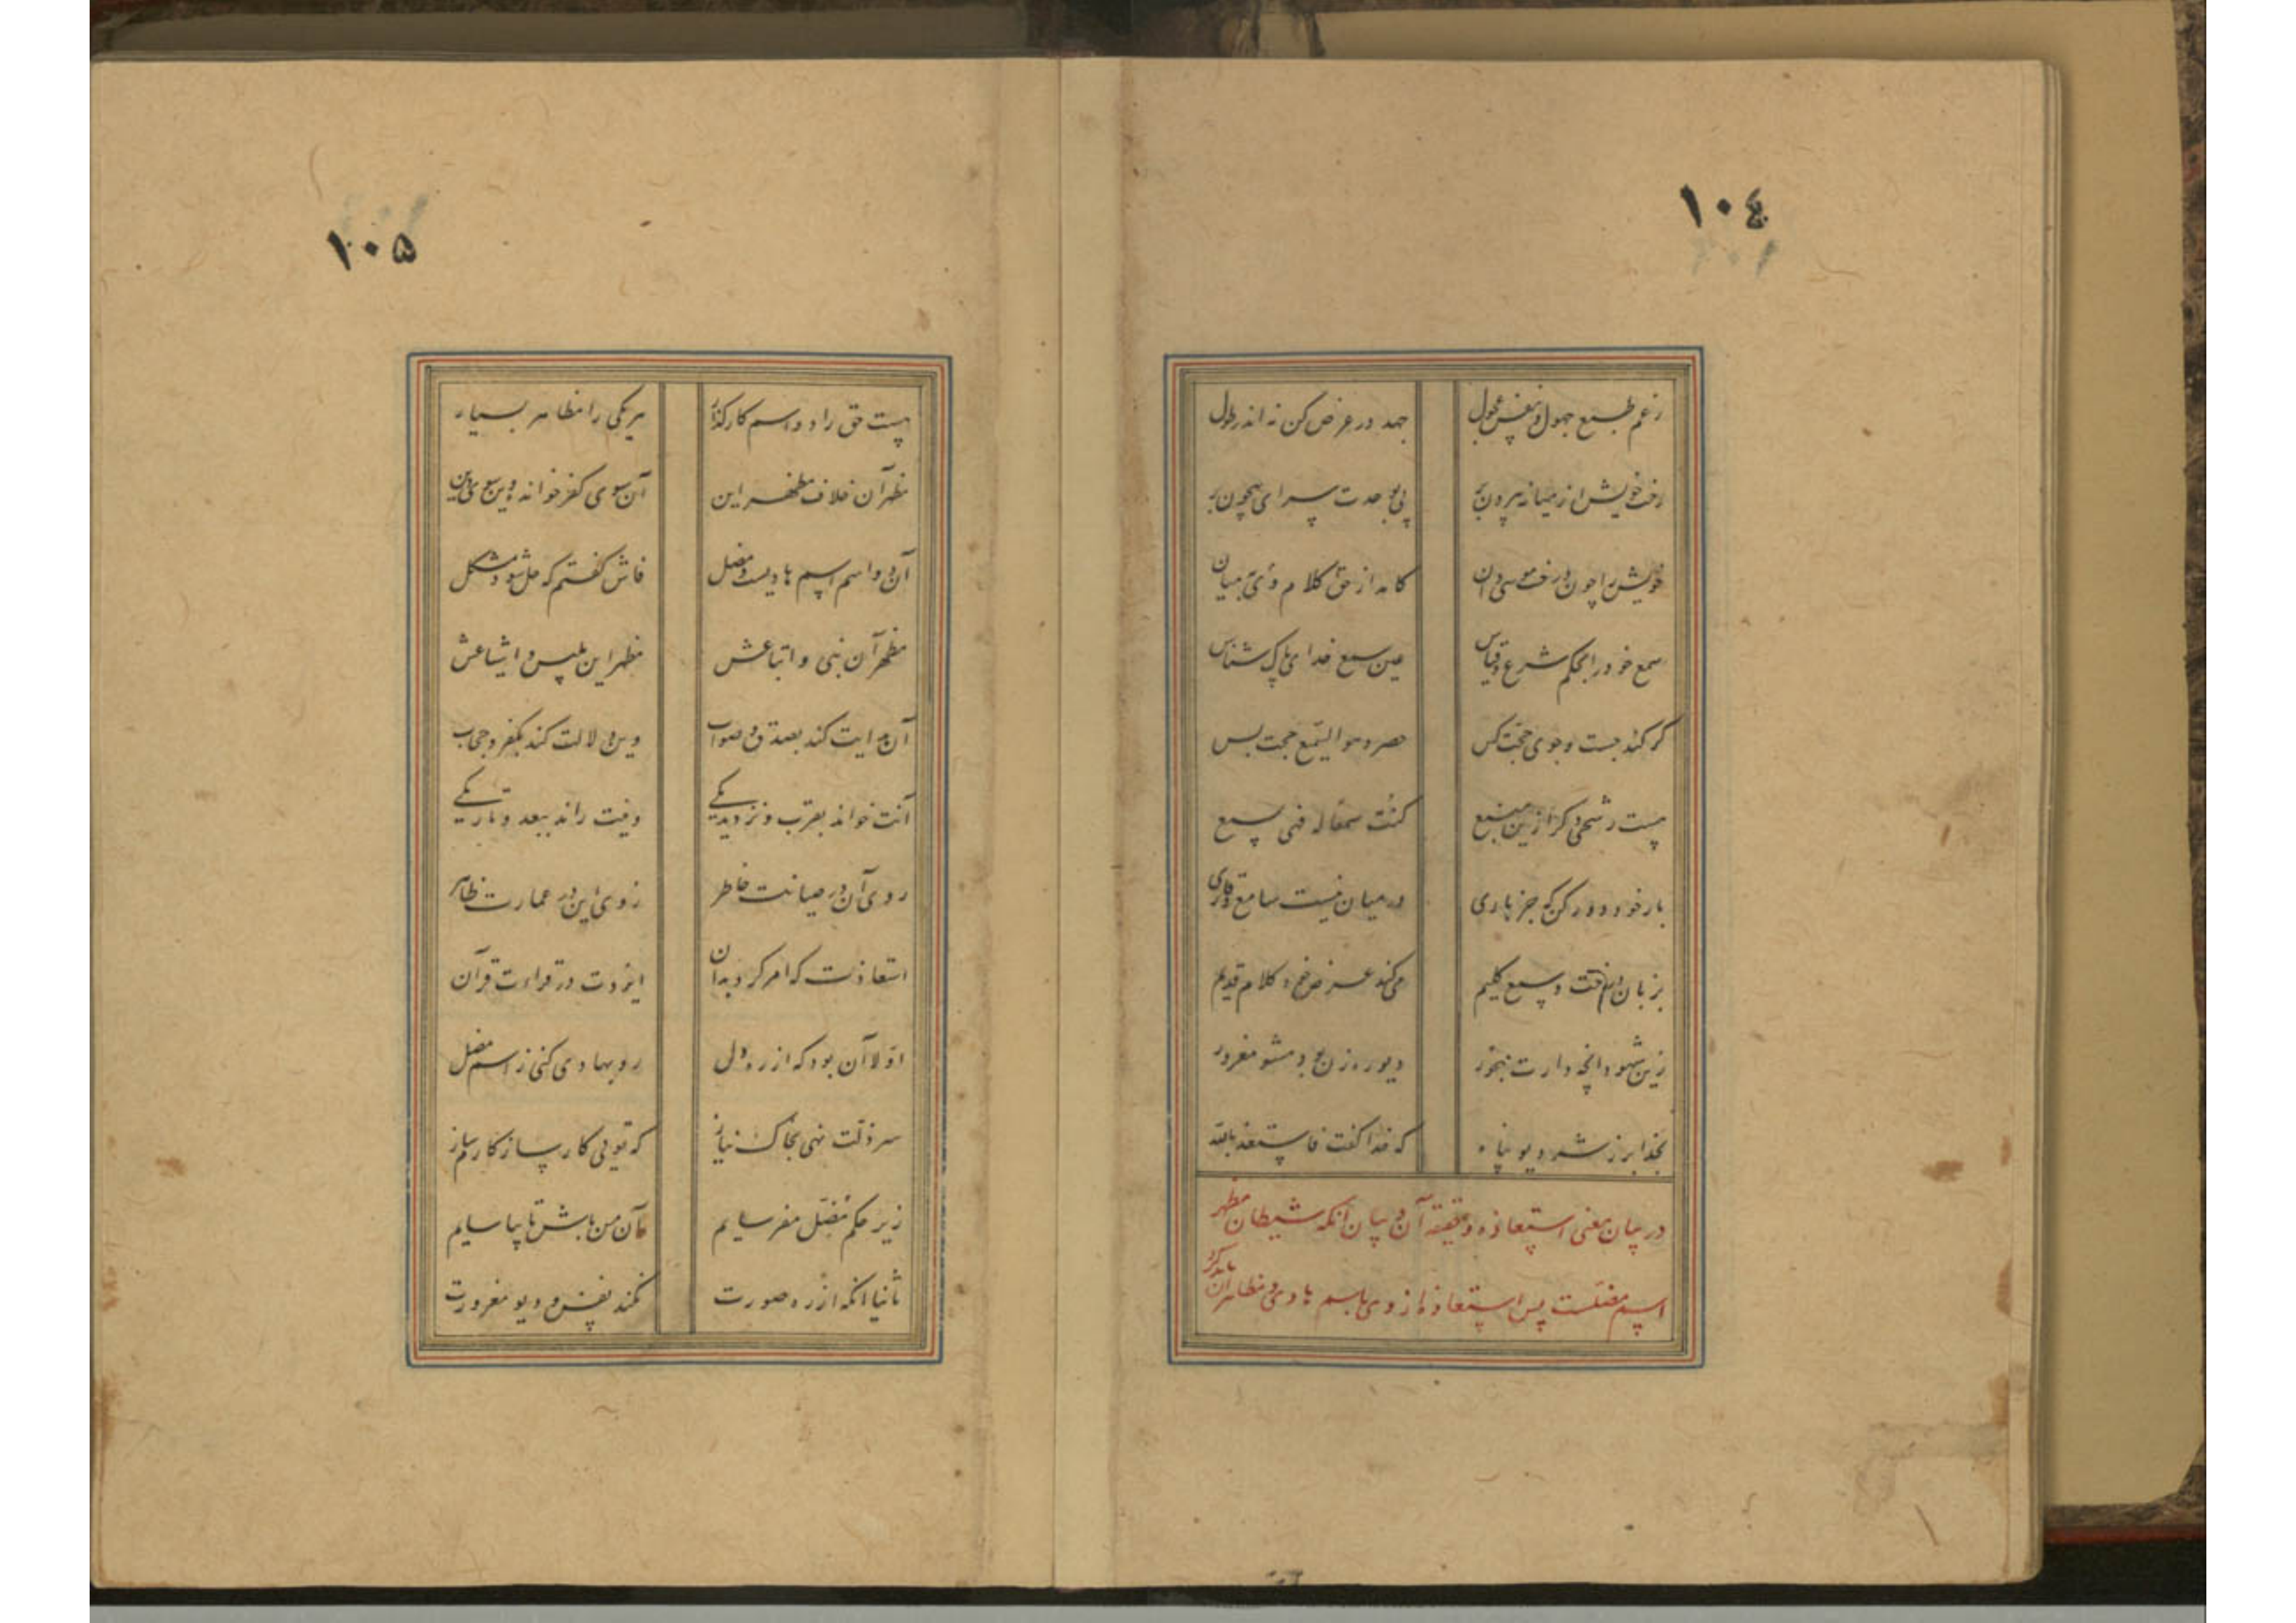 ١٠٤
زعم طبع جهول و نفس عجول جهد در عرض کن نه اندر طول
رخت خویش از میانه بیرون بر پی بوحدت سرای بیچون بر
خویش را چون درخت موسی دان کامد از حق کلام وی بمیان
سمع خود را بحکم شرع و قیاس عین سمع خدای پاک شناس
گر کند جست و جوی حجت کس حصر و هو السمیع حجت بس
هست رشحی دگر ازین منبع کنت سمعا له فبی یسمع
بار خود دور کن که جز باری در میان نیست سامع و قاری
بزبان درخت و سمع کلیم میکند عرض خود کلام قدیم
زین شهود آنچه دارت مهجور دیو رهزن بود مشو مغرور
بخدا بر ز شر دیو پناه که خدا گفت فاستعذ بالله
در بیان معنی استعاذه و حقیقت آن و بیان آنکه شیطان مظهر
اسم مضلست پس استعاذه از وی باسم هادی و مظاهر آن باید کرد
١٠٥
هست حق را دو اسم کارگذار هر یکی را مظاهر بسیار
مظهر آن خلاف مظهر این آن سوی کفر خواند وین سوی دین
آن دو اسم اسم هادیست و مضل فاش گفتم که حل شود مشکل
مظهر آن نبی و اتباعش مظهر این بلیس و اشیاعش
آن هدایت کند بصدق و صواب وین دلالت کند بکفر و حجاب
آنت خواند بقرب و نزدیکی وینت راند ببعد و تاریکی
روی آن در صیانت خاطر روی این در عمارت ظاهر
استعاذت که امر کرد بدان ایزدت در قراءت قرآن
اولا آن بود که از ره دل رو بهادی کنی ز اسم مضل
سر ذلت نهی بخاک نیاز که تویی کارساز کارم ساز
زیر حکم مضل مفرسایم مآن من باش تا بیاسایم
ثانیا آنکه از ره صورت نکند نفس و دیو مغرورت